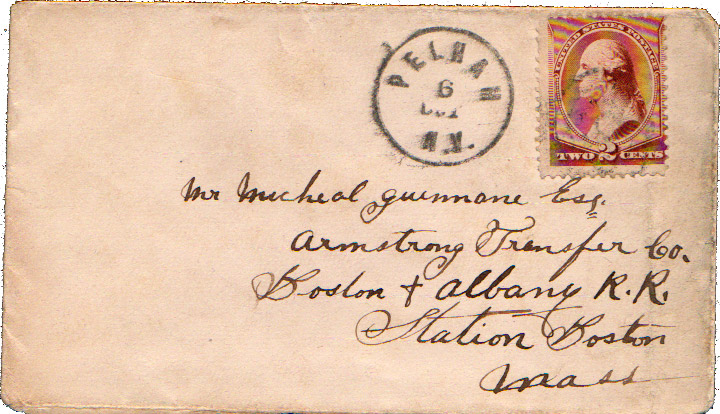 PELHAM
6
N.Y.
UNITED STATES POSTAGE
TWO 2 CENTS
Mr Micheal Guinnane Esq.
Armstrong Transfer Co.
Boston & Albany R.R.
Station Boston
Mass